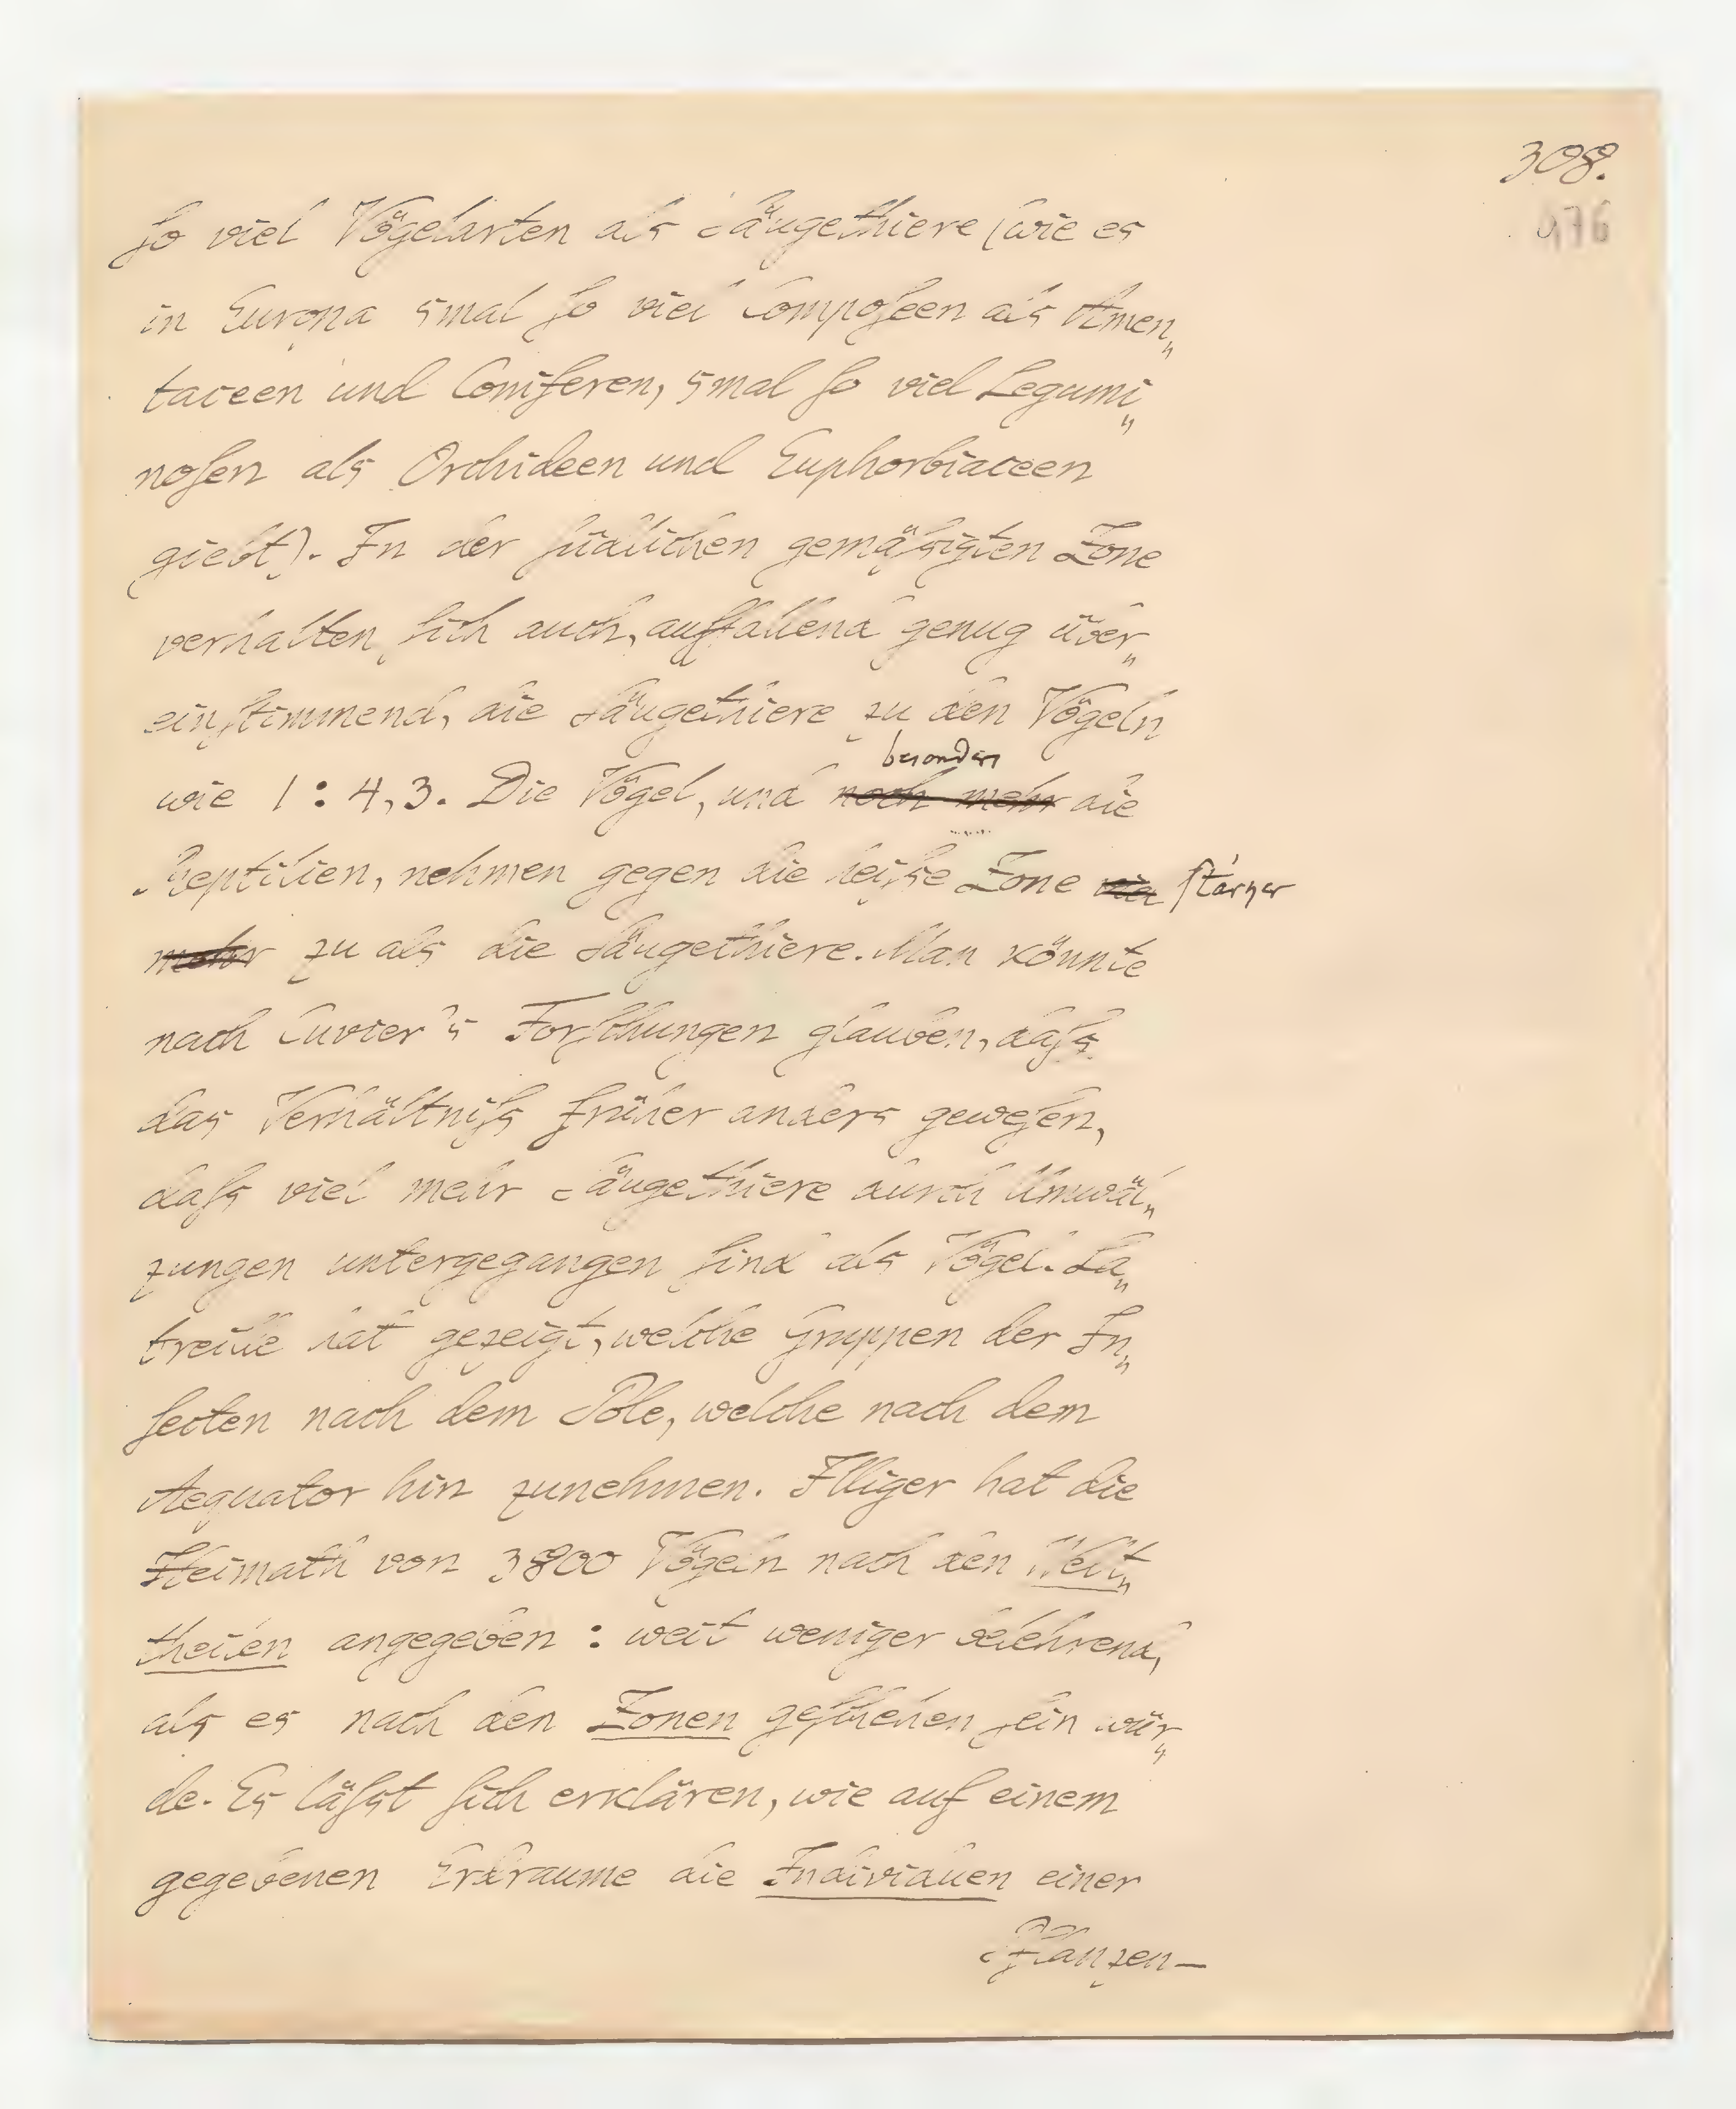 308.
476
ſo viel Vögelarten als Säugethiere (wie es
in Europa 5mal ſo viel Compoſeen als Amen„
taceen und Coniferen, 5mal ſo viel Legumi„
noſen als Orchideen und Euphorbiaceen
giebt). In der ſüdlichen gemäſsigten Zone
verhalten ſich auch, auffallend genug über„
einſtimmend, die Säugethiere zu den Vögeln
besonders
wie 1 : 4,3. Die Vögel, und noch mehr die
Reptilien, nehmen gegen die heiſse Zone viel ſtärker
mehr zu als die Säugethiere. Man könnte
nach Cuvier's Forſchungen glauben, daſs
das Verhältniſs früher anders geweſen,
daſs viel mehr Säugethiere durch Umwäl„
zungen untergegangen ſind als Vögel. La„
treille hat gezeigt, welche Gruppen der In„
ſecten nach dem Pole, welche nach dem
Aequator hin zunehmen. Illiger hat die
Heimath von 3800 Vögeln nach den Welt„
theilen angegeben : weit weniger belehrend,
als es nach den Zonen geſchehen ſein wür„
de. Es läſst ſich erklären, wie auf einem
gegebenen Erdraume die Individuen einer
Pflanzen—